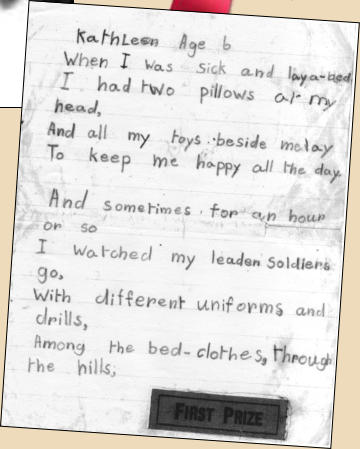 Kathleen Age 6
When I was sick and lay a-bed
I had two pillows at my
head,
And all my toys beside me lay
To keep me happy all the day.
And sometimes for an hour
or so
I watched my leaden soldiers
go,
With different uniforms and
drills,
Among the bed-clothes, through
the hills;
FIRST PRIZE